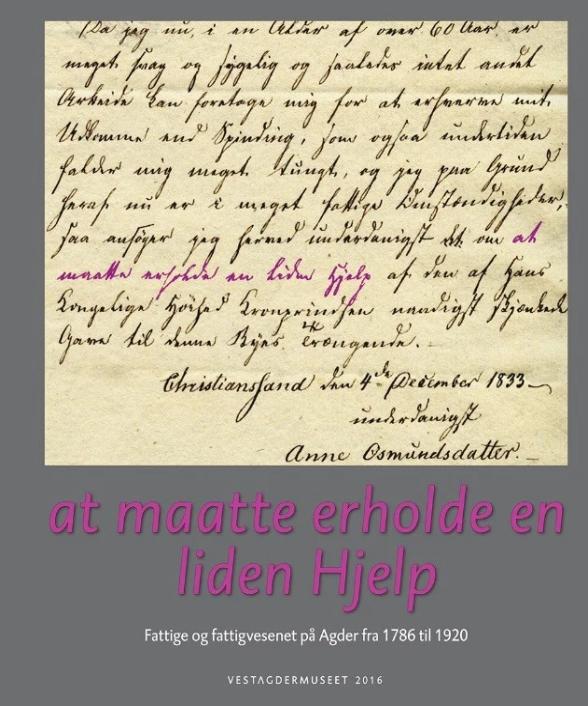 Da jeg nu, i en Alder af over 60 Aar er
meget svag og sygelig og saaledes intet andet
Arbeide kan foretage mig for at erhverve mit
Udkomme end Spinding, som ogsaa undertiden
falder mig meget tungt, og jeg paa Grund
heraf nu er i meget fattige Omstændigheder,
saa ansøger jeg herved underdanigst om at
maatte erholde en liden Hjelp af den af Hans
Kongelige Høihed Kronprindsen naadigst skjænkede
Gave til denne Byes Trængende.
Christiansand den 4de December 1833
underdanigst
Anne Osmundsdatter.
at maatte erholde en
liden Hjelp
Fattige og fattigvesenet på Agder fra 1786 til 1920
VESTAGDERMUSEET 2016